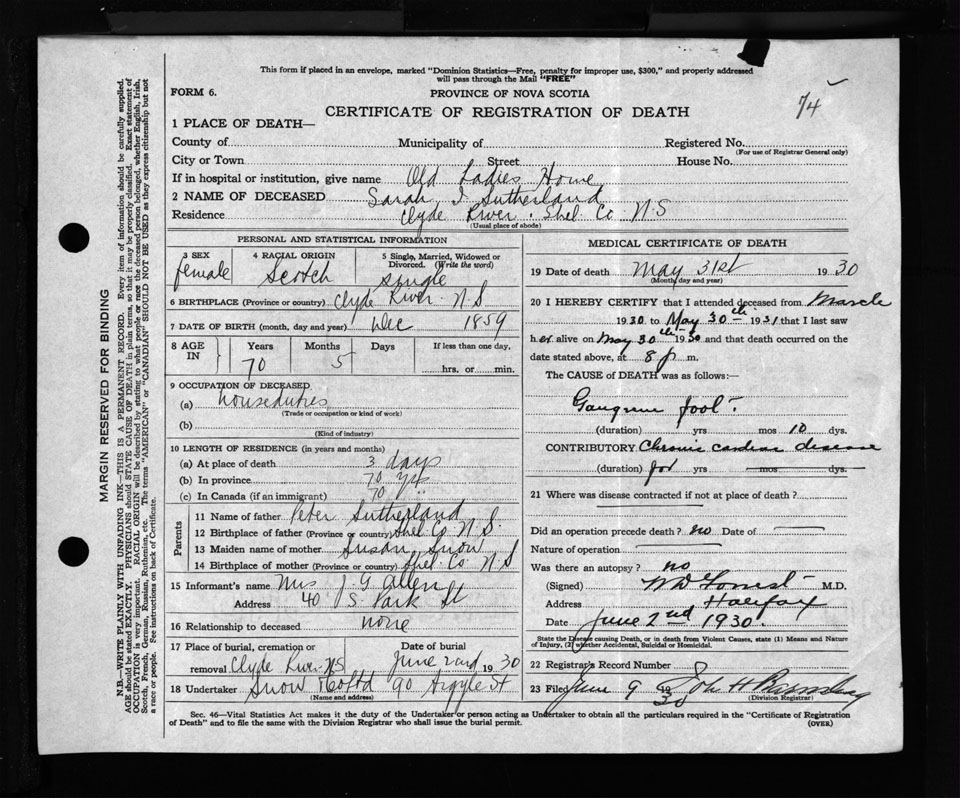 This form if placed in an envelope, marked "Dominion Statistics—Free, penalty for improper use, $300," and properly addressed
will pass through the Mail "FREE"
FORM 6.
PROVINCE OF NOVA SCOTIA
74
CERTIFICATE OF REGISTRATION OF DEATH
1 PLACE OF DEATH—
County of Municipality of Registered No.
(For use of Registrar General only)
City or Town Street House No.
If in hospital or institution, give name Old Ladies Home
2 NAME OF DECEASED Sarah I. Sutherland
Residence Clyde River. Shel. Co. N.S
(Usual place of abode)
PERSONAL AND STATISTICAL INFORMATION
3 SEX 4 RACIAL ORIGIN 5 Single, Married, Widowed or
Divorced. (Write the word)
female Scotch single
6 BIRTHPLACE (Province or country) Clyde River. N.S
7 DATE OF BIRTH (month, day and year) Dec 1859
8 AGE IN Years Months Days If less than one day,
70 5 hrs. or min.
9 OCCUPATION OF DECEASED
(a) houseduties
(Trade or occupation or kind of work)
(b)
(Kind of industry)
10 LENGTH OF RESIDENCE (in years and months)
(a) At place of death 3 days
(b) In province 70 yrs
(c) In Canada (if an immigrant) 70 "
Parents
11 Name of father Peter Sutherland
12 Birthplace of father (Province or country) Shel Co N.S.
13 Maiden name of mother Susan Snow
14 Birthplace of mother (Province or country) Shel. Co N.S
15 Informant's name Mrs J. G. Allen
Address 40 S Park St
16 Relationship to deceased none
17 Place of burial, cremation or Date of burial
removal Clyde River NS June 2nd 1930
18 Undertaker Snow & Co Ltd 90 Argyle St
(Name and address)
MEDICAL CERTIFICATE OF DEATH
19 Date of death May 31st 1930
(Month, day and year)
20 I HEREBY CERTIFY that I attended deceased from March
1930 to May 30th 1931 that I last saw
her alive on May 30th 1930 and that death occurred on the
date stated above, at 8 p m.
The CAUSE of DEATH was as follows:—
Gangrene foot.
(duration) yrs mos 10 dys.
CONTRIBUTORY Chronic cardiac disease
(duration) yrs mos dys.
21 Where was disease contracted if not at place of death?
Did an operation precede death? no Date of
Nature of operation
Was there an autopsy? no
(Signed) W D Forrest M.D.
Address Halifax
Date June 2nd 1930
State the Disease causing Death, or in death from Violent Causes, state (1) Means and Nature
of Injury, (2) whether Accidental, Suicidal or Homicidal.
22 Registrar's Record Number
23 Filed June 9 1930 John H
(Division Registrar)
Sec. 46—Vital Statistics Act makes it the duty of the Undertaker or person acting as Undertaker to obtain all the particulars required in the "Certificate of Registration
of Death" and to file the same with the Division Registrar who shall issue the burial permit.
(OVER)
MARGIN RESERVED FOR BINDING
N.B.—WRITE PLAINLY WITH UNFADING INK—THIS IS A PERMANENT RECORD. Every item of information should be carefully supplied.
AGE should be stated EXACTLY. PHYSICIANS should STATE CAUSE OF DEATH in plain terms, so that it may be properly classified. Exact statement of
OCCUPATION is very important. RACIAL ORIGIN will be described by stating to what people or race the deceased person belonged, whether English, Irish,
Scotch, French, German, Russian, Ruthenian, etc. The terms "AMERICAN" or "CANADIAN" SHOULD NOT BE USED as they express citizenship but not
a race or people. See instructions on back of Certificate.